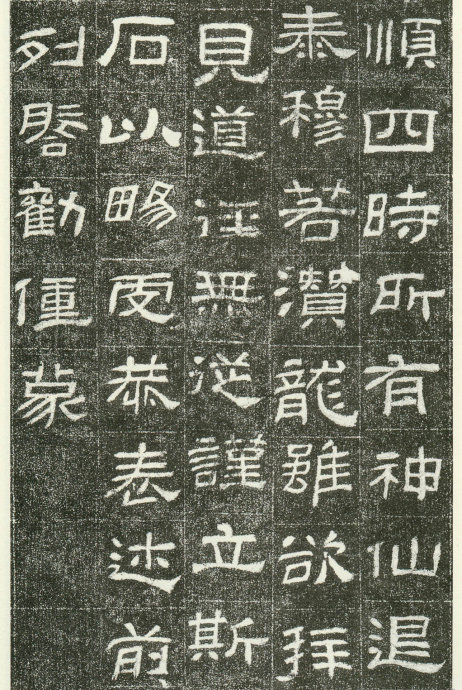 順四時所有神仙退
泰穆若潛龍雖欲拜
見道徑無從謹立斯
石以暢虔恭表述前
列啓勸僮蒙